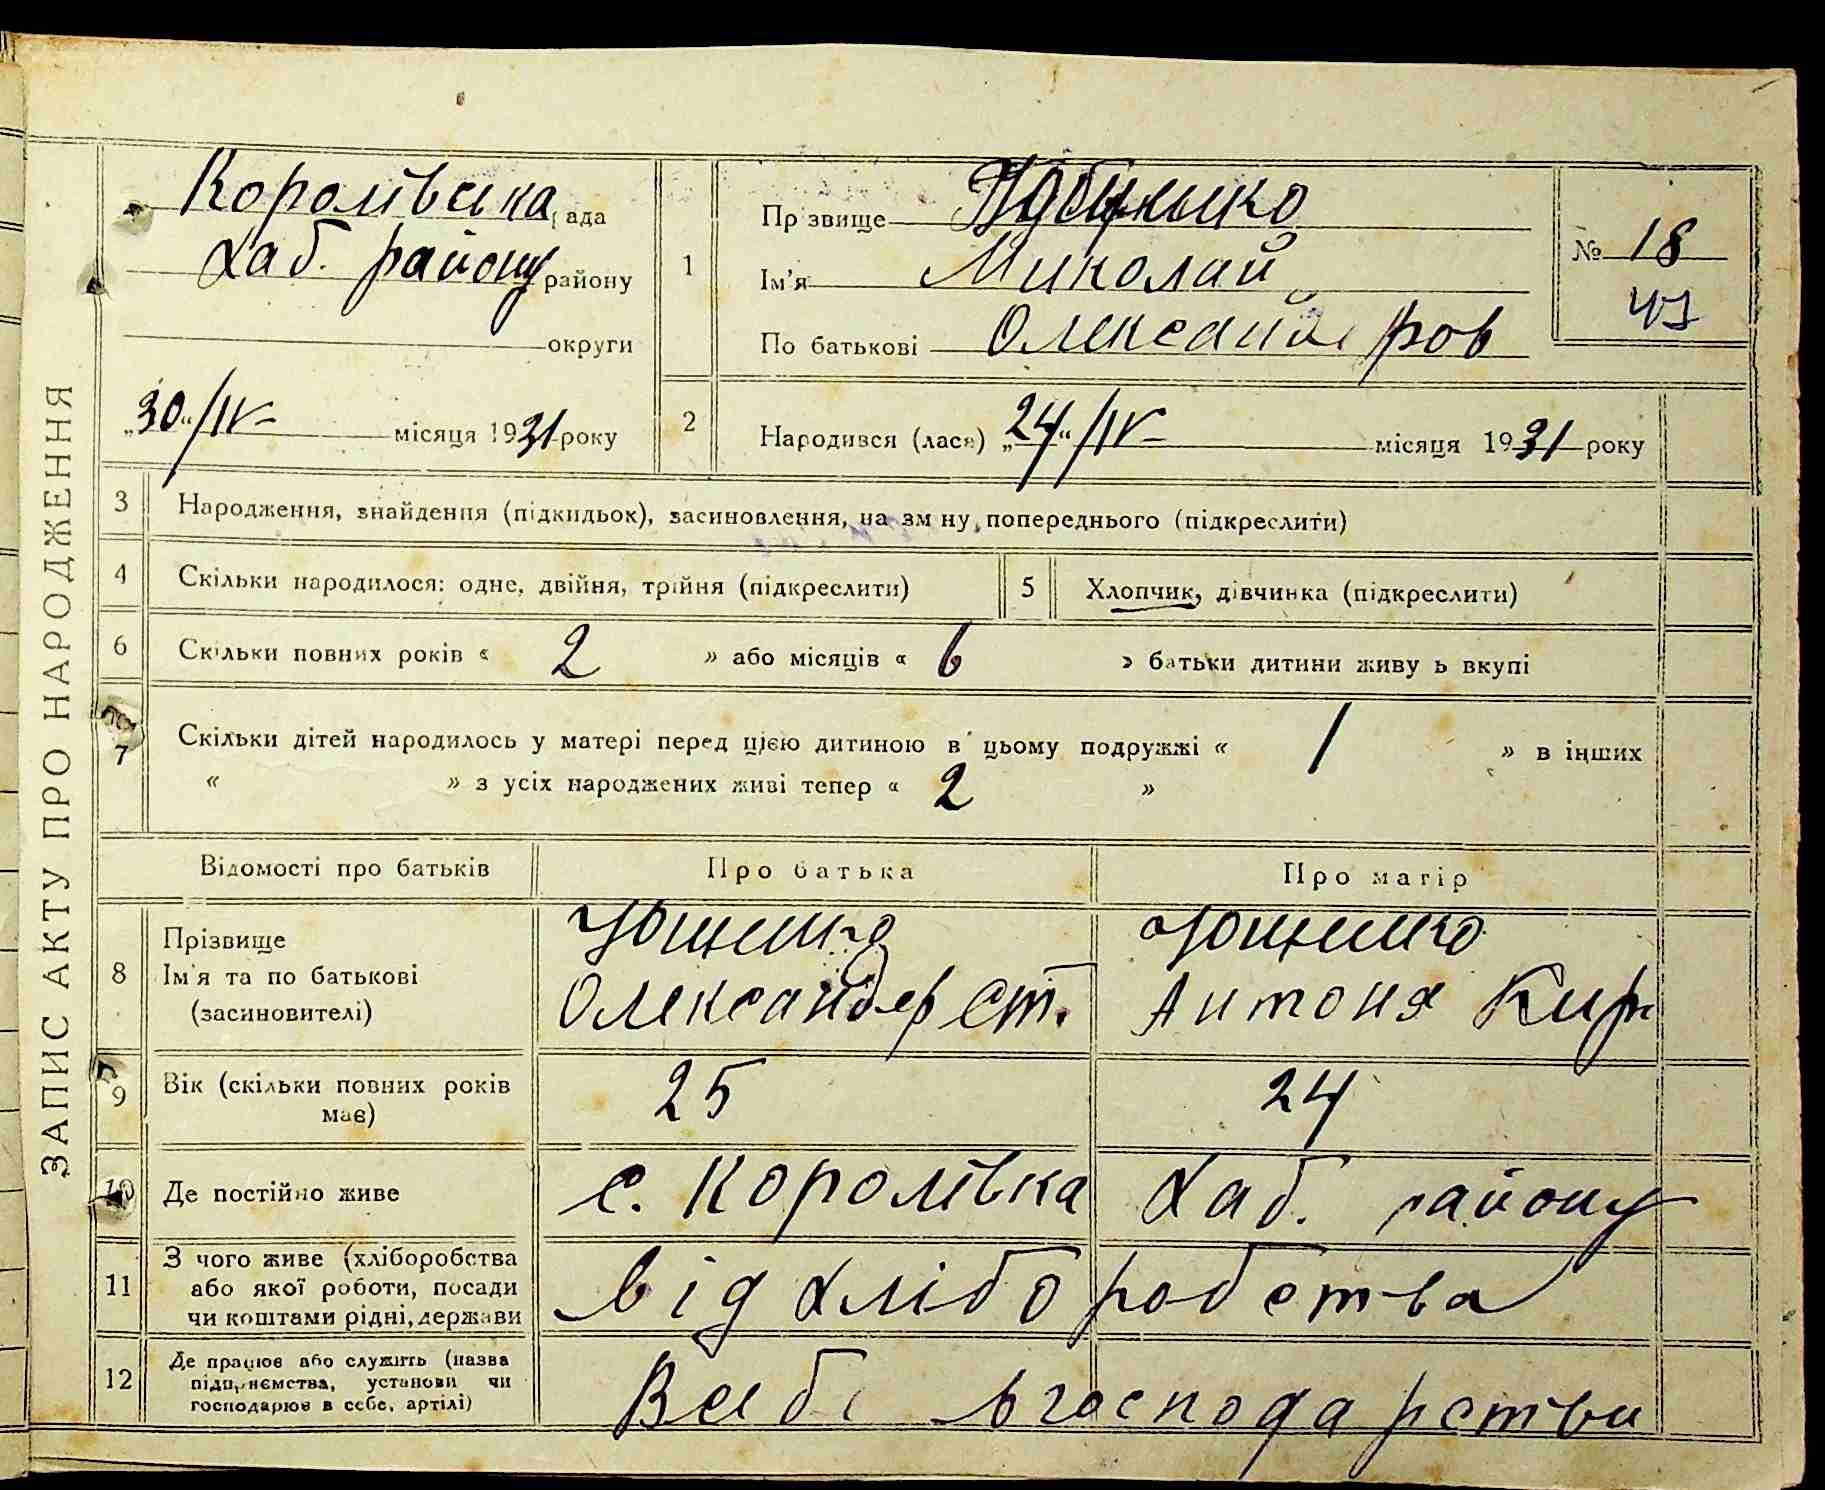 ЗАПИС АКТУ ПРО НАРОДЖЕННЯ
Королівська рада
Хаб. району району
округи
„30“/IV- місяця 1931 року
1
Пр звище
Ім'я Миколай
По батькові Олександров
№ 18
47
2
Народився (лася) „24“/IV- місяця 1931 року
3 Народження, знайдення (підкидьок), засиновлення, на зм ну попереднього (підкреслити)
4 Скільки народилося: одне, двійня, трійня (підкреслити)
5 Хлопчик, дівчинка (підкреслити)
6 Скільки повних років « 2 » або місяців « 6 » батьки дитини живу ь вкупі
7 Скільки дітей народилось у матері перед цією дитиною в цьому подружжі « 1 » в інших
« » з усіх народжених живі тепер « 2 »
Відомості про батьків Про батька Про матір
8 Прізвище
Ім'я та по батькові
(засиновителі)
Ющенко
Олександер Ст.
Ющенко
Антоня Кир
9 Вік (скільки повних років
має)
25 24
10 Де постійно живе с. Королівка Хаб. району
11 З чого живе (хліборобства
або якої роботи, посади
чи коштами рідні, держави
від хліборобства
12 Де працює або служить (назва
підприємства, установи чи
господарює в себе, артілі)
в господарстви